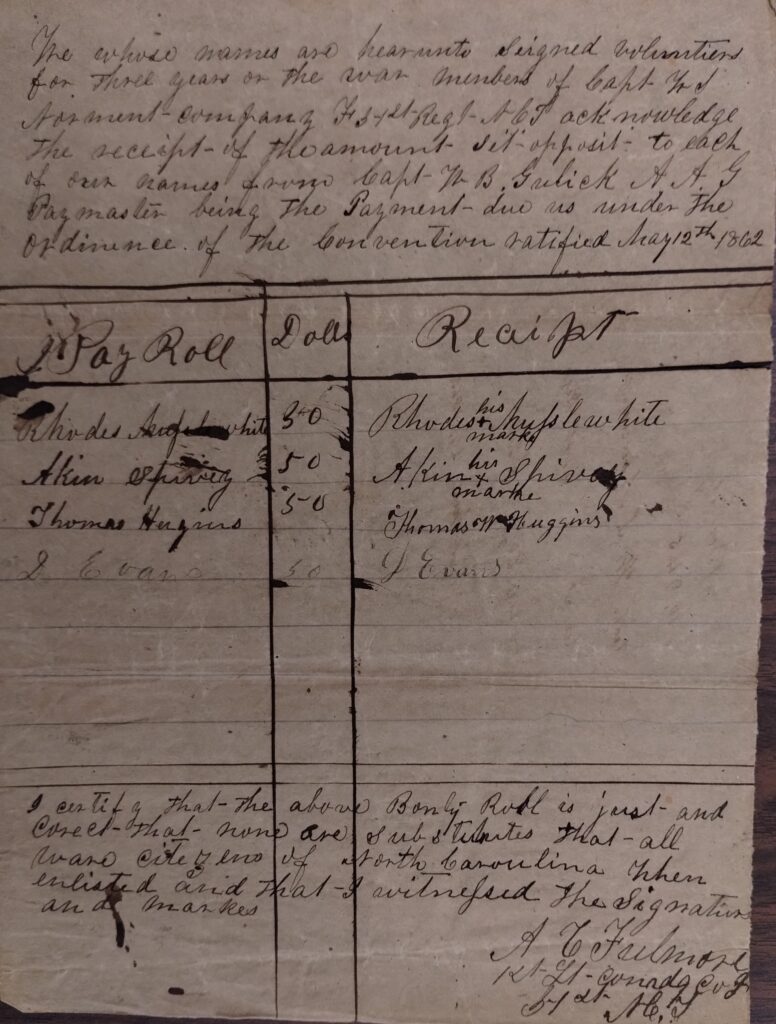 We whose names are hearunto Seigned voluntiers
for three years or the war members of Capt W S
Norment company F 51st Regt N C T acknowledge
the receipt of the amount sit opposit to each
of our names from Capt W B Gulick A A G
Paymaster being the Payment due us under the
Ordinence of the Convention ratified May 12th 1862
Pay Roll Dolls Receipt
Rhodes white 50 Rhodes his x marke Musslewhite
Akin Spivey 50 Akin his x marke Spivey
Thomas Hugins 50 Thomas W Huggins
D Evans 50 D Evans
I certify that the above Bonty Roll is just and
Corect that none are Substitutes that all
ware citezens of North Caroulina when
enlisted and that I witnessed the Signature
and markes
A E Fulmore
1st Lt Comdg Co F
51st N C T